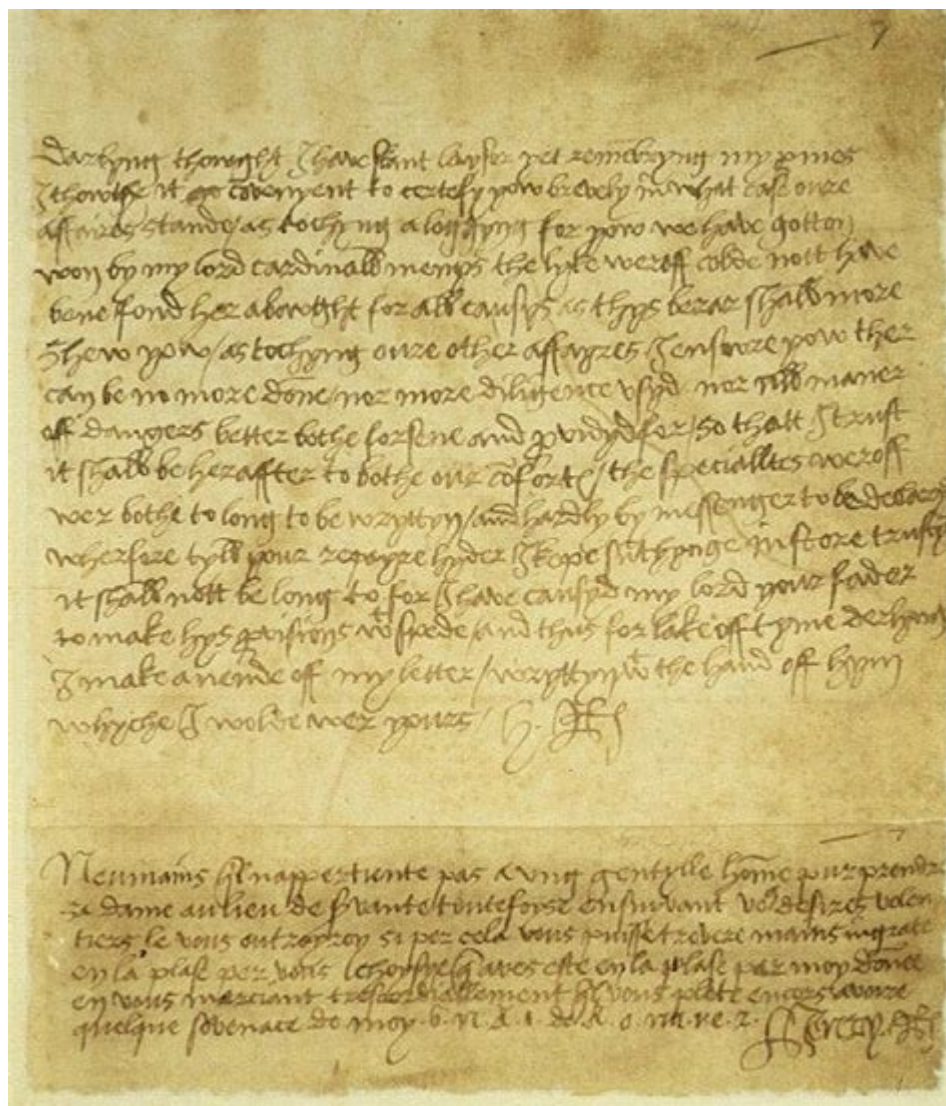 7
Darlyng thowght I have skant laysor yet remembryng my promes
I thowthe it co[n]venyent to certefy yow brevely in what case oure
affaires stande / as tochyng a loggyng for yow we have gotton
won by my lord cardinalls menys the lyke weroff colde nott have
bene fond her abowght for all causys as thys berar shall more
shew yow / as tochyng oure other affayres I ensure yow ther
can be no more done / nor more diligence usyd nor all maner
off dangers better bothe forsene and p[ro]vidyd for / so thatt I trust
it shall be heraffter to bothe our co[m]forts / the specialltes weroff
wer bothe to long to be wryttyn / and hardly by messenger to be declard
wherfore tyll your repayre hyder I kepe sumthynge in store trustyng
it shall nott be long to for I have causyd my lord your fader
to make hys p[ro]visions wt spede / and thus for lake off tyme derlyng
I make an ende off my letter / wryttyn wt the hand off hym
whyche I wolde wer yours / H. R
7
Neumains quil nappertiente pas a ung gentylle home pur prendre
sa dame au lieu de servante toutefoise ensuivant vos desires volen
tiers le vous outroyroy si per cela vous puisse trovere mains ingrate
en la plase per vous choysye que aves este en la plase par moy donne
en vous merciant trescordiallement quil vous plete encors avoire
quelque sovenace de moy . 6 . n . A . 1 . de A . o . na . ve . z .
Henry R